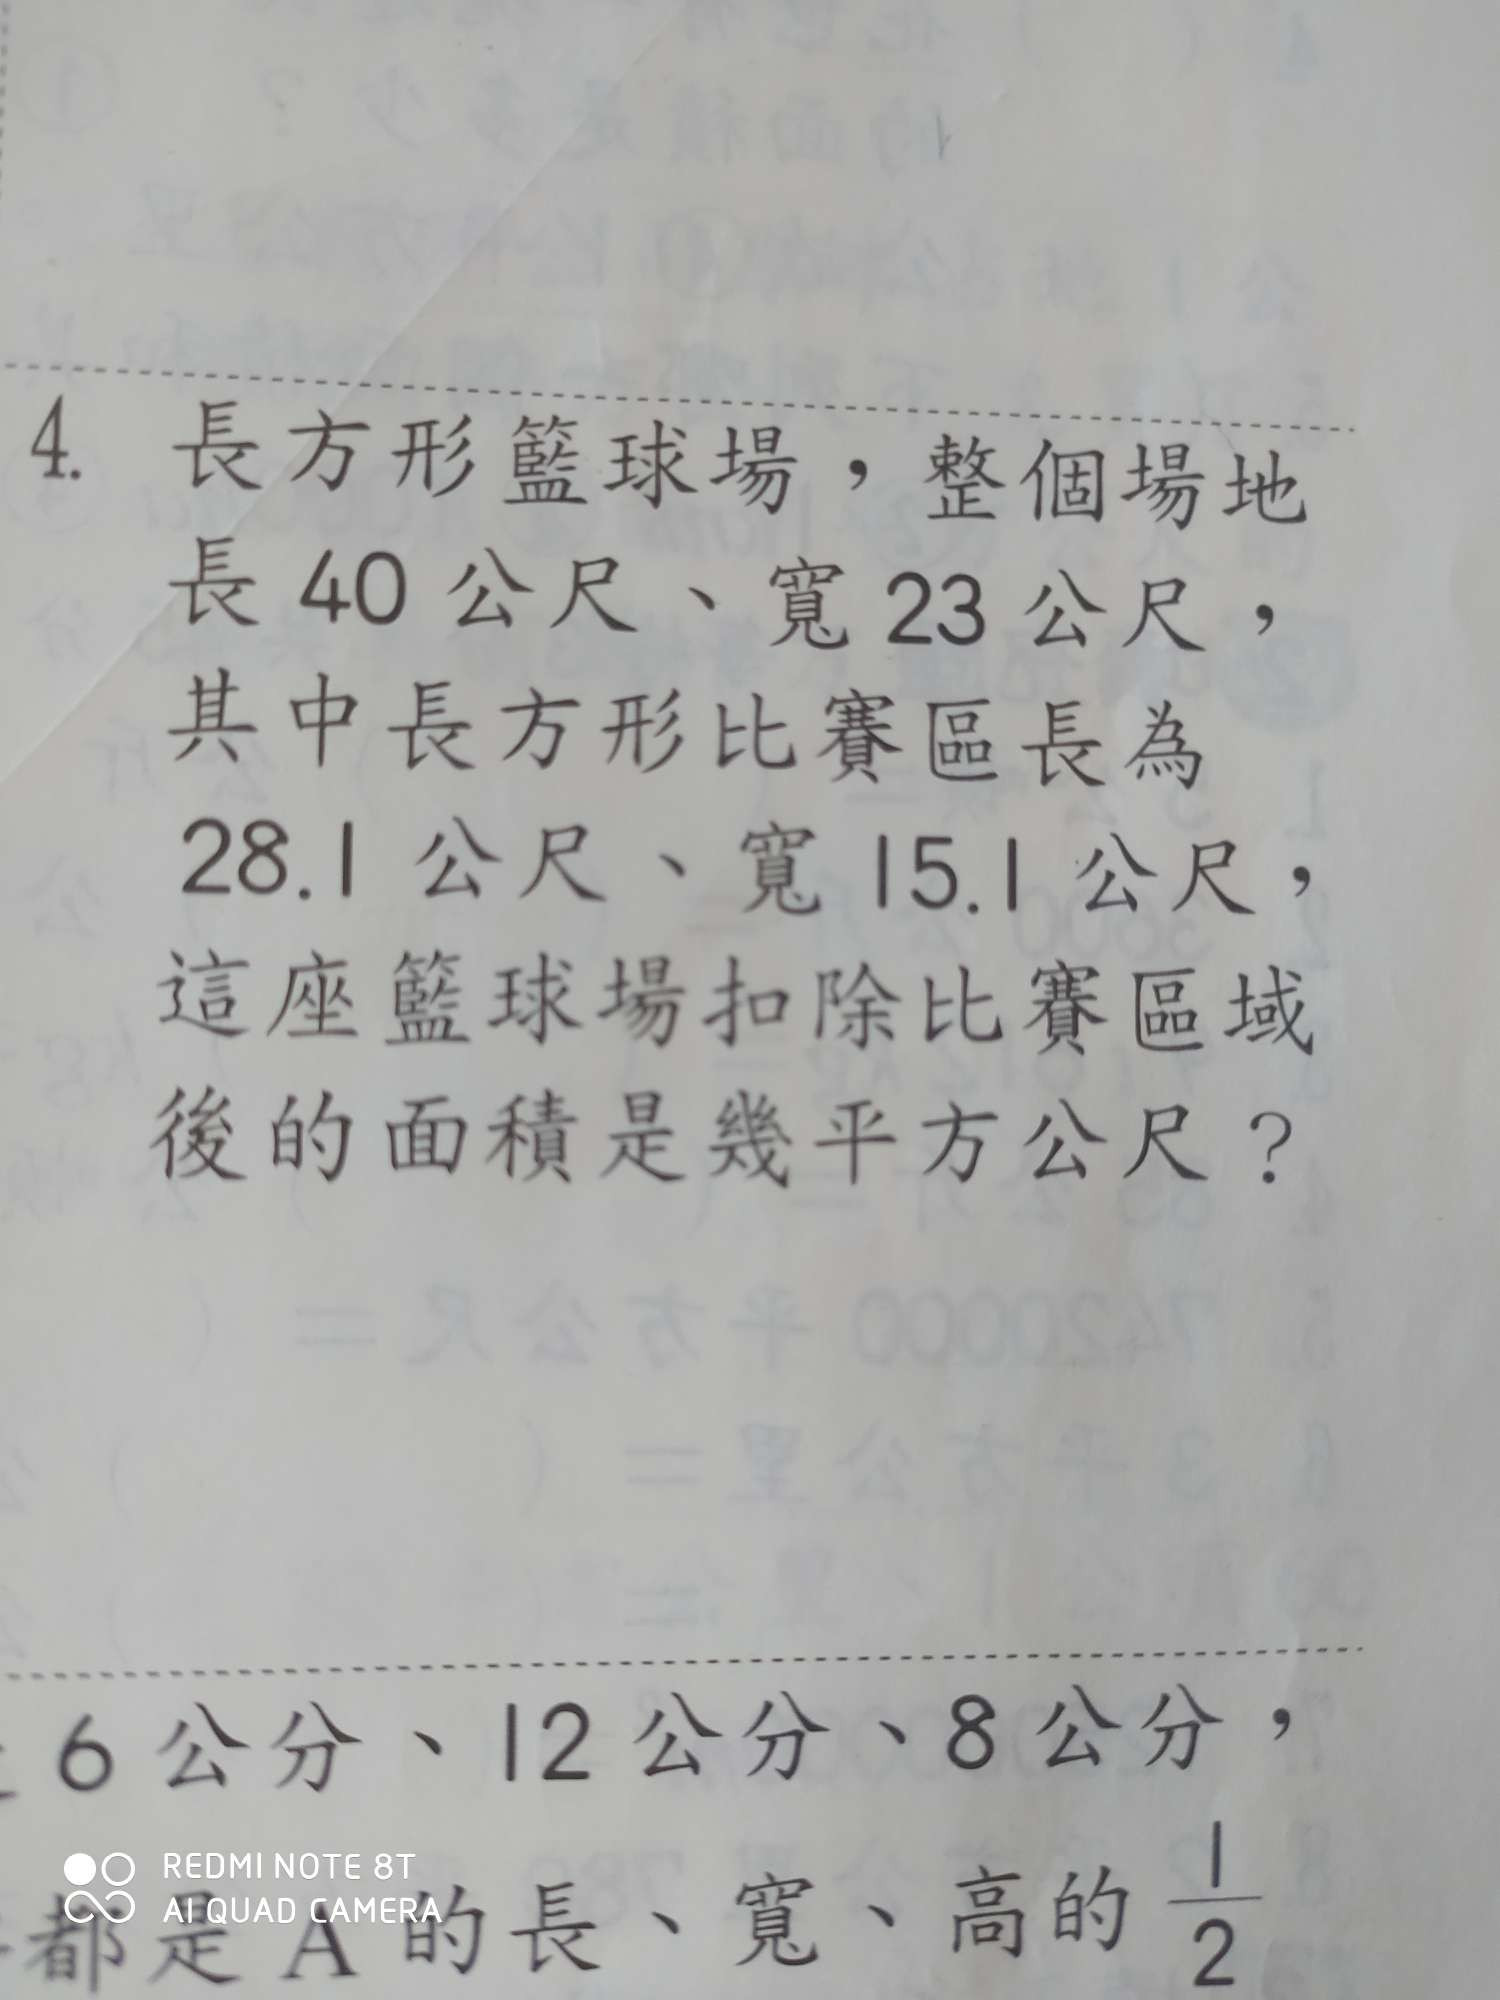 4. 長方形籃球場，整個場地
長 40 公尺、寬 23 公尺，
其中長方形比賽區長為
28.1 公尺、寬 15.1 公尺，
這座籃球場扣除比賽區域
後的面積是幾平方公尺？
6 公分、12 公分、8 公分，
都是 A 的長、寬、高的 1/2
REDMI NOTE 8T
AI QUAD CAMERA